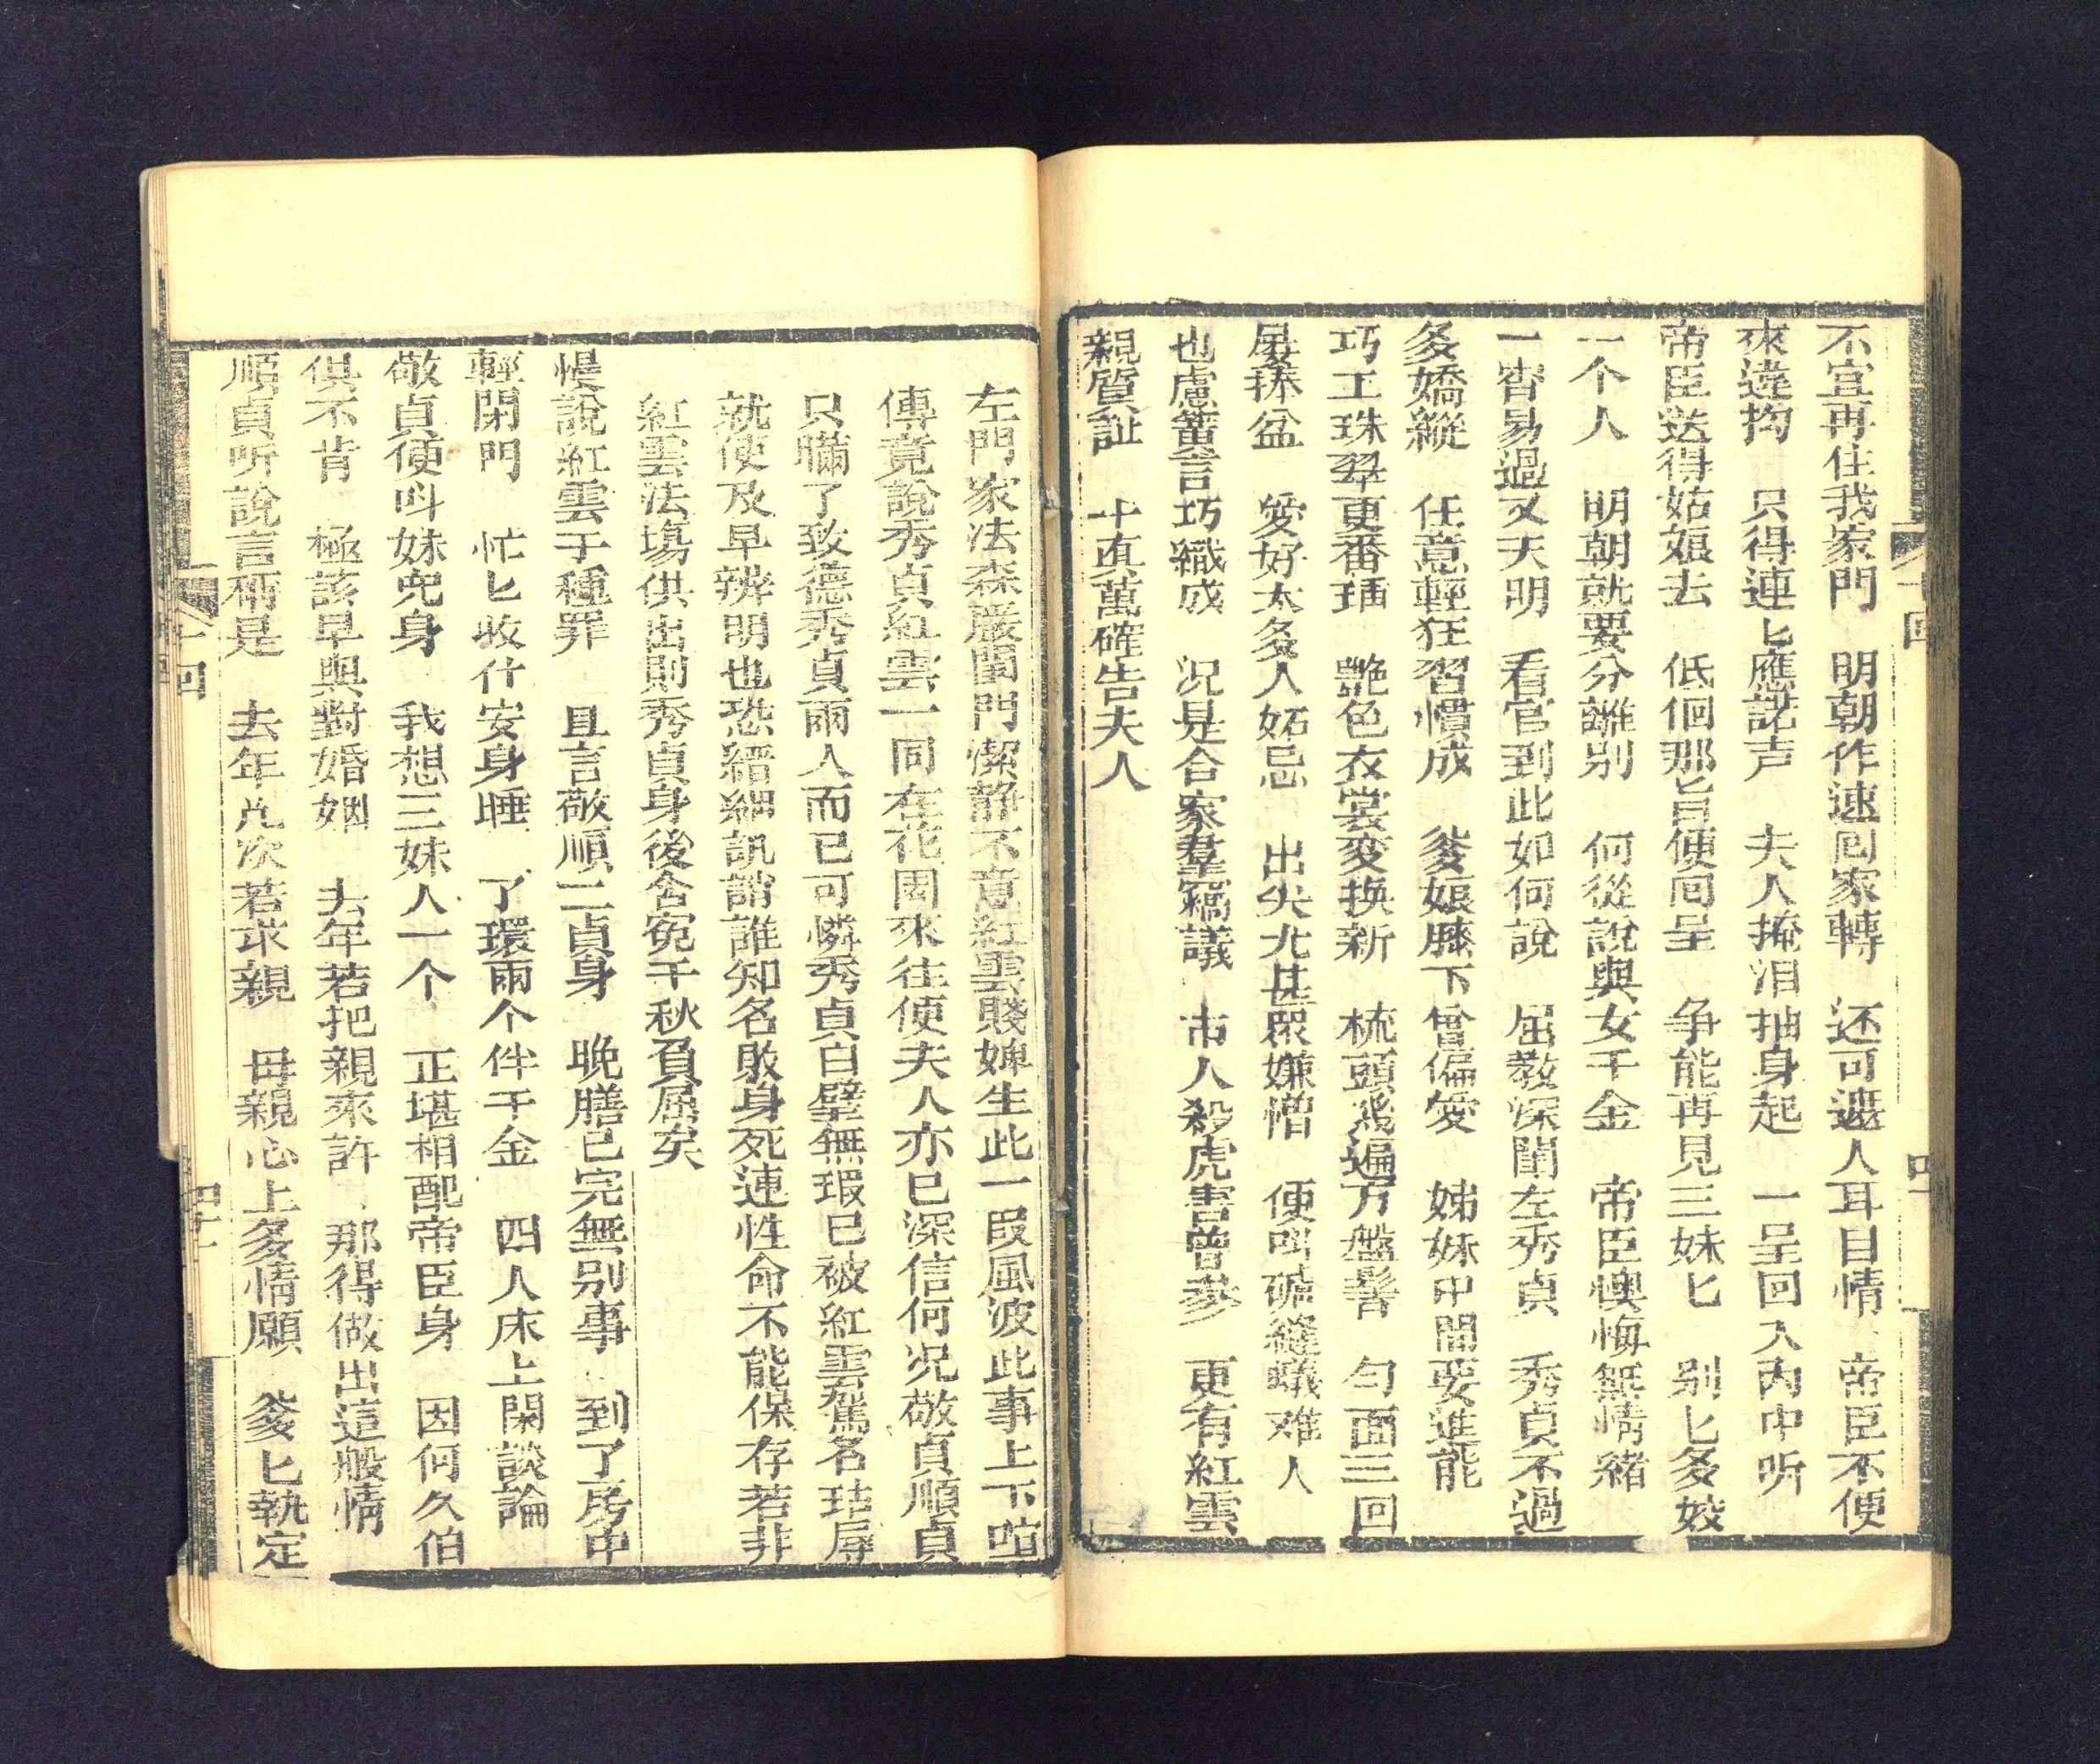 不宜再住我家門　明朝作速回家轉　还可遮人耳目情　帝臣不便
來違拘　只得連匕應諾声　夫人掩泪抽身起　一呈回入內中听
帝臣送得姑娘去　低徊那旨便回呈　争能再見三妹匕　别匕多姣
一个人　明朝就要分離别　何從說與女千金　帝臣懊悔無情緒
一宵易過又天明　看官到此如何說　屈教深閨左秀貞　秀貞不過
多嬌縱　任意輕狂習慣成　爹娘膝下曾偏愛　姊妹中間要逞能
巧工珠翠更番插　艷色衣裳变换新　梳頭幾遍方盤髻　勻面三回
屢捧盆　愛好太多人妬忌　出尖尤甚眾嫌憎　便叫破縫蟻难人
也慮簧言巧織成　况是合家羣竊議　市人殺虎害曾參　更有紅雲
親質証　十真萬確告夫人
左門家法森嚴閨門潔静不意紅雲賤婢生此一叚風波此事上下喧
傳竟說秀貞紅雲一同在花園來往便夫人亦已深信何况敬貞順貞
只瞞了致德秀貞兩人而已可憐秀貞白璧無瑕已被紅雲駕名玷辱
就使及早辨明也恐縉紳訊謗誰知名敗身死連性命不能保存若非
紅雲法塲供出則秀貞身後含寃千秋負屈矣
慢說紅雲于種罪　且言敬順二貞身　晚膳已完無别事　到了房中
輕閉門　忙匕收什安身睡　了環兩个伴千金　四人床上閑談論
敬貞便呌妹兜身　我想三妹人一个　正堪相配帝臣身　因何久伯
俱不肯　極該早與對婚姻　去年若把親來許　那得做出這般情
順貞听說言稱是　去年凢次若求親　母親心上多情願　爹匕執定
十四
十四
四十一